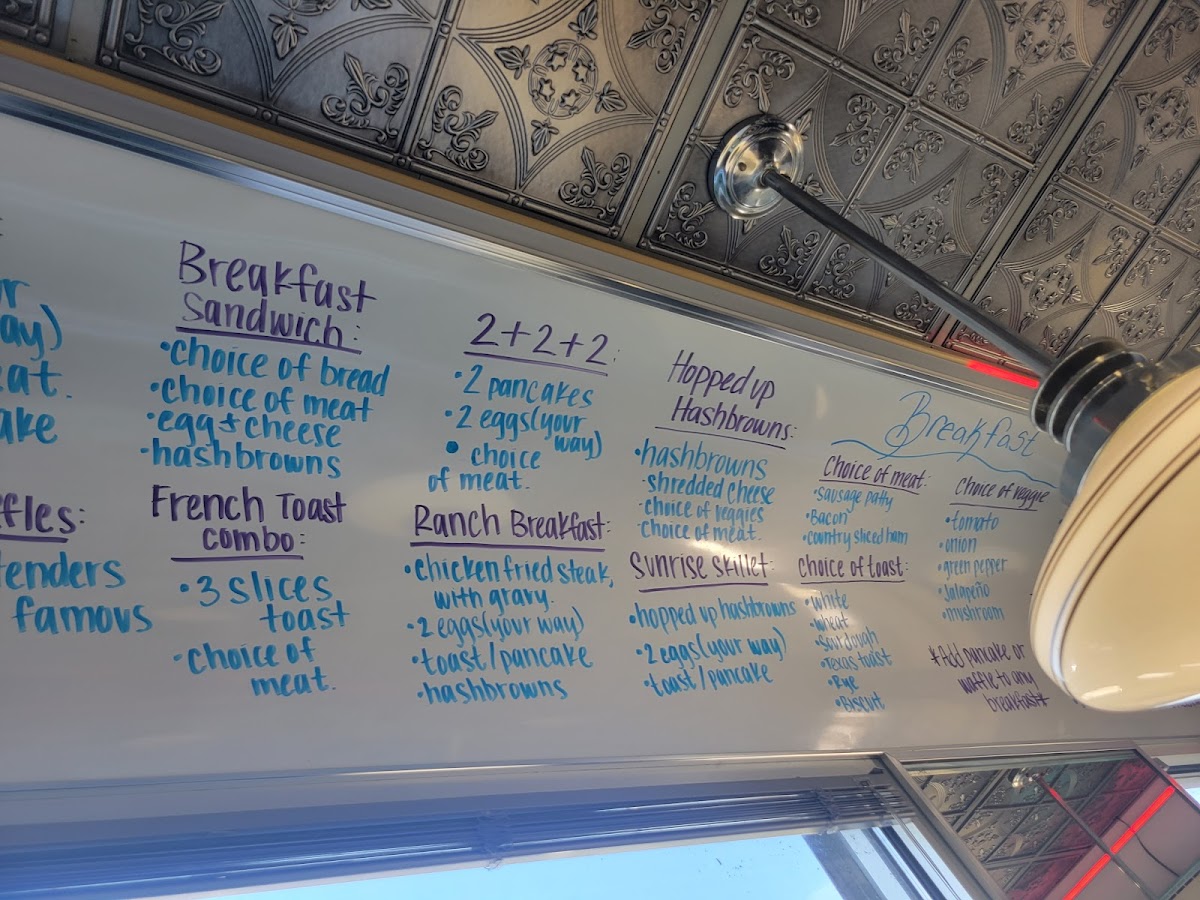 ay)
eat.
ake
ffles:
tenders
famous
Breakfast
Sandwich:
•choice of bread
•choice of meat
•egg + cheese
•hashbrowns
French Toast
combo:
•3 slices
toast
•choice of
meat.
2+2+2:
•2 pancakes
•2 eggs(your
way)
• choice
of meat.
Ranch Breakfast:
•chicken fried steak,
with gravy.
•2 eggs(your way)
•toast/pancake
•hashbrowns
Hopped up
Hashbrowns:
•hashbrowns
•shredded cheese
•choice of veggies
•choice of meat.
Sunrise skillet:
•hopped up hashbrowns
•2 eggs(your way)
•toast/pancake
Breakfast
Choice of meat:
•sausage patty
•Bacon
•country sliced ham
choice of toast:
•white
•wheat
•sourdough
•Texas toast
•Rye
•Biscuit
Choice of veggie
•tomato
•onion
•green pepper
•Jalapeño
•mushroom
*Add pancake or
waffle to any
breakfast*